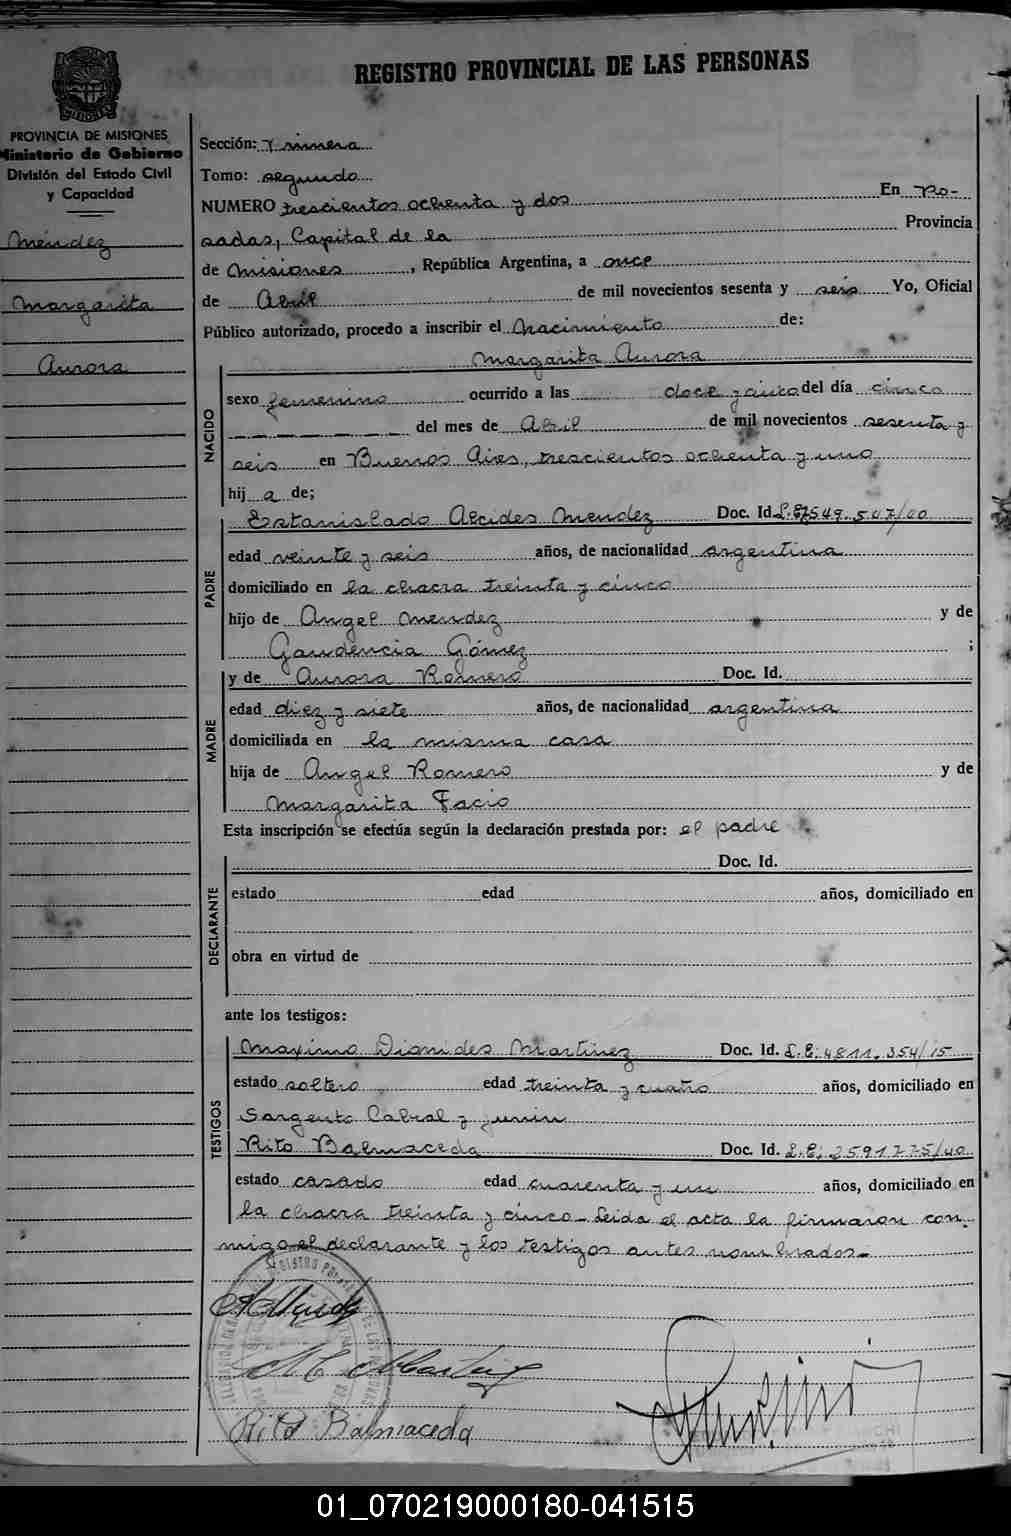 REGISTRO PROVINCIAL DE LAS PERSONAS
MISIONES
PROVINCIA DE MISIONES
Ministerio de Gobierno
División del Estado Civil
y Capacidad
Méndez
Margarita
Aurora
Sección: Primera
Tomo: segundo
NUMERO trescientos ochenta y dos En Po-
sadas, Capital de la Provincia
de Misiones, República Argentina, a once
de Abril de mil novecientos sesenta y seis Yo, Oficial
Público autorizado, procedo a inscribir el Nacimiento de:
Margarita Aurora
NACIDO
sexo femenino ocurrido a las doce y cinco del día cinco
del mes de Abril de mil novecientos sesenta y
seis en Buenos Aires, trescientos ochenta y uno
hij a de;
PADRE
Estanislado Alcides Mendez Doc. Id. L.E. 7.549.507/00
edad veinte y seis años, de nacionalidad argentina
domiciliado en la chacra treinta y cinco
hijo de Angel Mendez y de
Gaudencia Gómez ;
MADRE
y de Aurora Romero Doc. Id.
edad diez y siete años, de nacionalidad argentina
domiciliada en la misma casa
hija de Angel Romero y de
Margarita Facio
Esta inscripción se efectúa según la declaración prestada por: el padre
DECLARANTE
Doc. Id.
estado edad años, domiciliado en
obra en virtud de
ante los testigos:
TESTIGOS
Maximo Diomides Martinez Doc. Id. L.E: 4811.354/15
estado soltero edad treinta y cuatro años, domiciliado en
Sargento Cabral y Junin
Rito Balmaceda Doc. Id. L.E: 2591775/40
estado casado edad cuarenta y un años, domiciliado en
la chacra treinta y cinco - Leida el acta la firmaron con-
migo el declarante y los testigos antes nombrados -
Rito Balmaceda
01_070219000180-041515